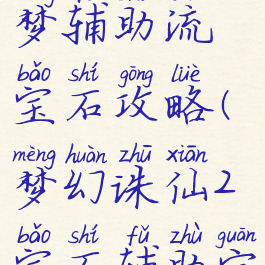 梦辅助流
bǎo shí gōng lüè
宝石攻略(
mèng huàn zhū xiān
梦幻诛仙2
bǎo shí fǔ zhù guān
宝石辅助官